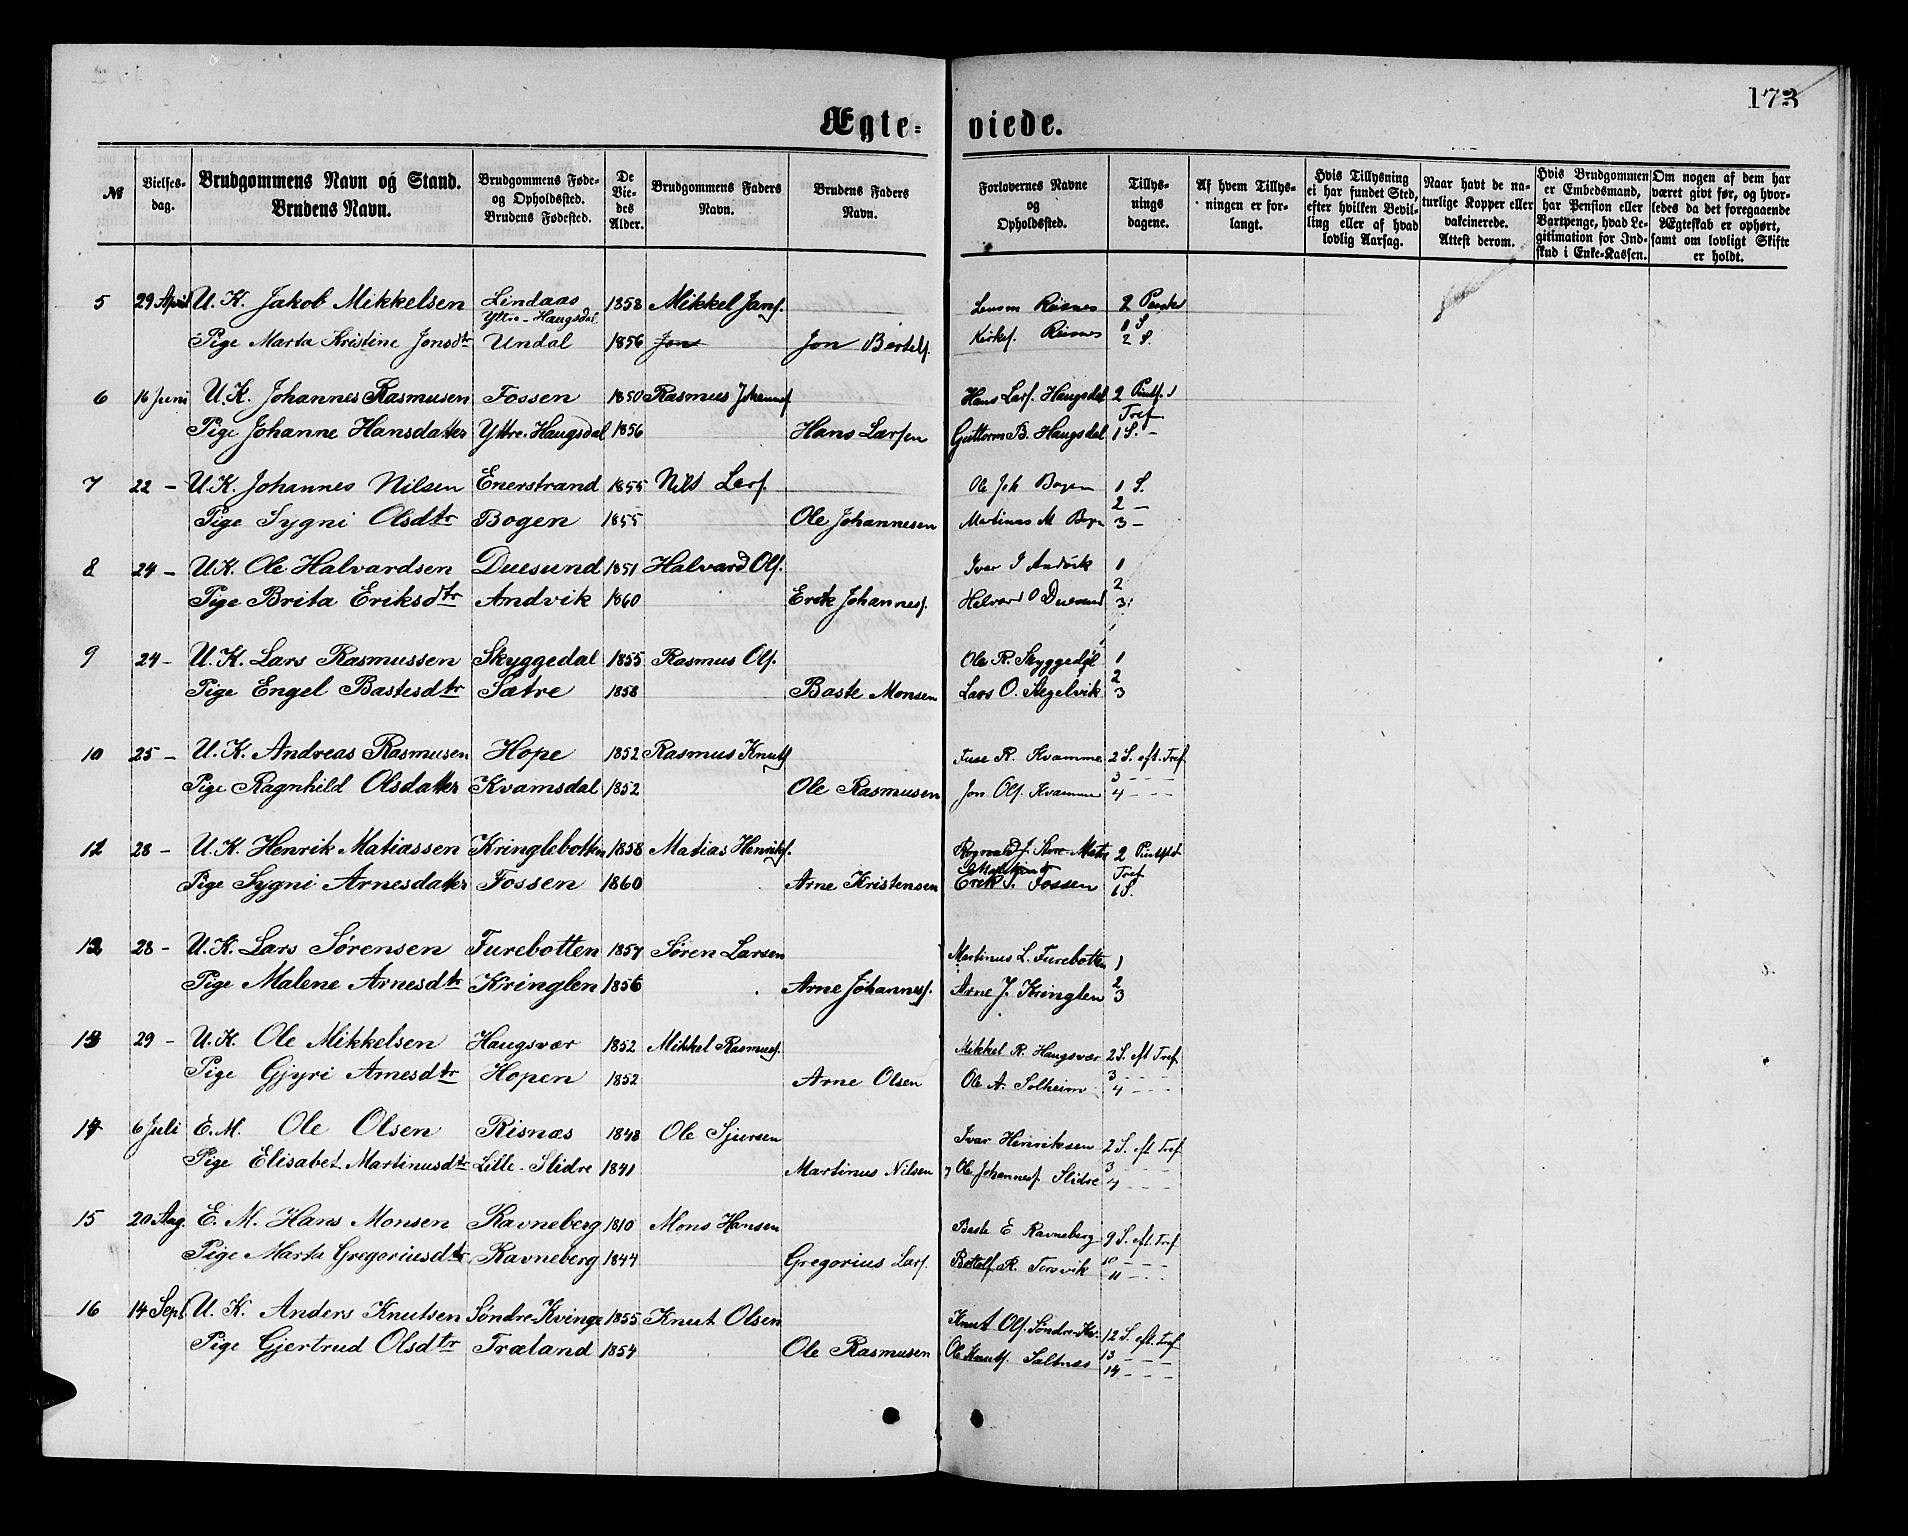 173
Ægte- viede.
№ Vielses-dag. Brudgommens Navn og Stand. Brudens Navn. Brudgommens Føde- og Opholdssted. Brudens Fødested. De Viedes Alder. Brudgommens Faders Navn. Brudens Faders Navn. Forlovernes Navne og Opholdssted. Tillysnings dagene. Af hvem Tillysningen er forlangt. Hvis Tillysning ei har fundet Sted, efter hvilken Bevilling eller af hvad lovlig Aarsag. Naar havt de naturlige Kopper eller vakcinerede. Attest derom. Hvis Brudgommen er Embedsmand, har Pension eller Vartpenge, hvad Legitimation for Indskud i Enke-Kassen. Om nogen af dem har været givt før, og hvorledes da det foregaaende Ægteskab er ophørt, samt om lovligt Skifte er holdt.
5 29 April U. K. Jakob Mikkelsen Lindaas Yttre-Haugsdal 1858 Mikkel Jans. Lensm Risnes 2
Pige Marta Kristine Jonsdtr Undal 1856 Jon Bertels. Kirkes. Risnes 1 S. 2 S.
6 16 Juni U. K. Johannes Rasmusen Fossen 1850 Rasmus Johanns. Hans Lars. Haugsdal 2
Pige Johanne Hansdatter Yttre-Haugsdal 1856 Hans Larsen Guttorm B. Haugsdal Tref 1 S. -
7 22 - U. K. Johannes Nilsen Enerstrand 1855 Nils Lars. Ole Joh Bogen 1 S.
Pige Sygni Olsdtr Bogen 1855 Ole Johannesen Martinus M Boge 2 - 3 -
8 24 - U. K. Ole Halvardsen Duesund 1851 Halvard Ols. Ivar J Andvik 1
Pige Brita Eriksdtr Andvik 1860 Erik Johannes. Halvard O Duesund 2 3
9 24 - U. K. Lars Rasmussen Skyggedal 1855 Rasmus Ols. Ole R. Skyggedal 1
Pige Engel Bastesdtr Sætre 1858 Baste Monsen Lars O. Stegelvik 2 3
10 25 - U. K. Andreas Rasmusen Hope 1852 Rasmus Knuts. R. Kvamme 2 S. eft. Tref
Pige Ragnhild Olsdatter Kvamsdal 1852 Ole Rasmusen Jon Ols. Kvamme 3 - - - 4 - - -
11 28 - U. K. Henrik Matiassen Kringlebotten 1858 Matias Henriks. Store Matre 2
Pige Sygni Arnesdatter Fossen 1860 Arne Kristensen Erik S. Fossen Tref 1 S.
12 28 - U. K. Lars Sørensen Furebotten 1857 Søren Larsen Martinus L. Furebotten 1
Pige Malene Arnesdtr Kringlen 1856 Arne Johannes. Arne J. Kringlen 2 3
13 29 - U. K. Ole Mikkelsen Haugsvær 1852 Mikkel Rasmus. Mikkel R. Haugsvær 2 S. eft Tref
Pige Gjyri Arnesdtr Hopen 1852 Arne Olsen Ole A. Solheim 3 - - - 4 - - -
14 6 Juli E. M. Ole Olsen Risnæs 1848 Ole Sjursen Ivar Henriksen 2 S. eft Tref
Pige Elisabet Martinusdtr Lille-Slidre 1841 Martinus Nilsen Ole Johannes. Slidre 3 - - - 4 - - -
15 20 Aug. E. M. Hans Monsen Ravneberg 1810 Mons Hansen Baste E Ravneberg 9 S. eft. Tref
Pige Marta Gregoriusdtr Ravneberg 1844 Gregorius Lars. Bottolf R. Torsvik 10 - - - 11 - - -
16 14 Sept U. K. Anders Knutsen Søndre-Kvinge 1855 Knut Olsen Knut Ols. Søndre-Kv. 12 S. eft. Tref
Pige Gjertrud Olsdtr Træland 1854 Ole Rasmusen Ole Knuts. Saltnes 13 - - - 14 - - -